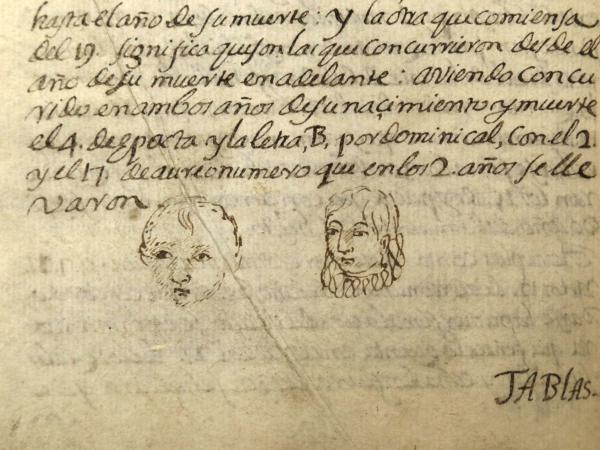 hasta el año de su muerte: y la otra que comiensa
del 19. significa que son las que concurrieron desde el
año de su muerte en adelante: aviendo concu
rrido en ambos años de su naçimiento y muerte
el 4. de epacta y la letra, B, por dominical, con el 2.
y el 17. de aureo numero que en los 2. años se lle
varon
TABlAS.